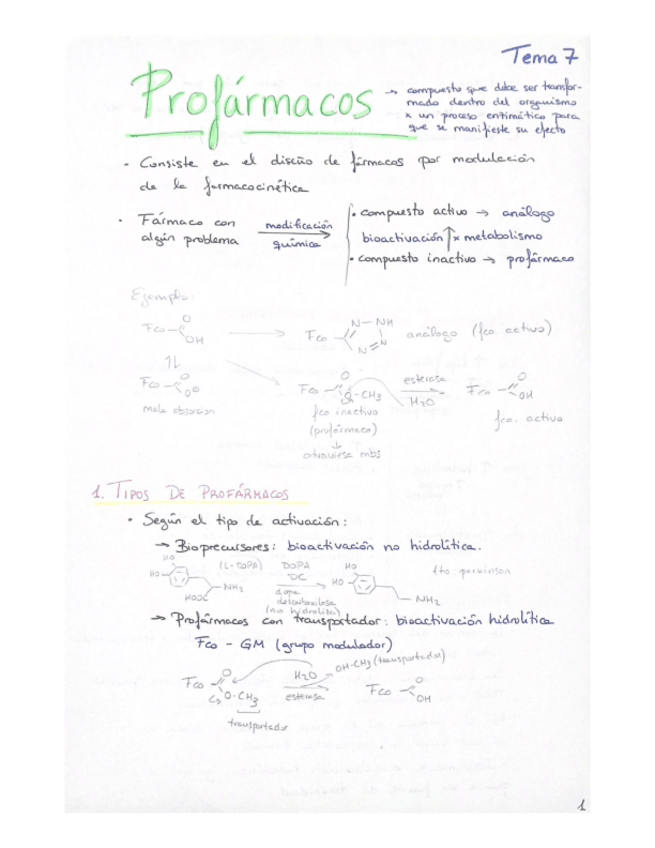 Tema 7
Profármacos
→ compuesto que debe ser transfor-
mado dentro del organismo
x un proceso enzimático para
que se manifieste su efecto
· Consiste en el diseño de fármacos por modulación
de la farmacocinética
· Fármaco con
algún problema
modificación
química
· compuesto activo → análogo
bioactivación ↑ x metabolismo
· compuesto inactivo → profármaco
Ejemplo:
Fco
O
OH
Fco
N – NH
N
N
análogo (fco activo)
Fco
O
O⊖
mala absorción
Fco
O
O-CH3
fco inactivo
(profármaco)
↓
atraviesa mbs
esterasa
H2O
Fco
O
OH
fco. activo
1. TIPOS DE PROFÁRMACOS
· Según el tipo de activación:
→ Bioprecursores: bioactivación no hidrolítica.
HO
HO
HOOC
NH2
(L-DOPA)
DOPA
DC
dopa
descarboxilasa
(no hidrólisis)
HO
HO
NH2
tto parkinson
→ Profármacos con transportador: bioactivación hidrolítica
Fco - GM (grupo modulador)
Fco
O
O-CH3
transportador
H2O
esterasa
OH-CH3 (transportador)
Fco
O
OH
1